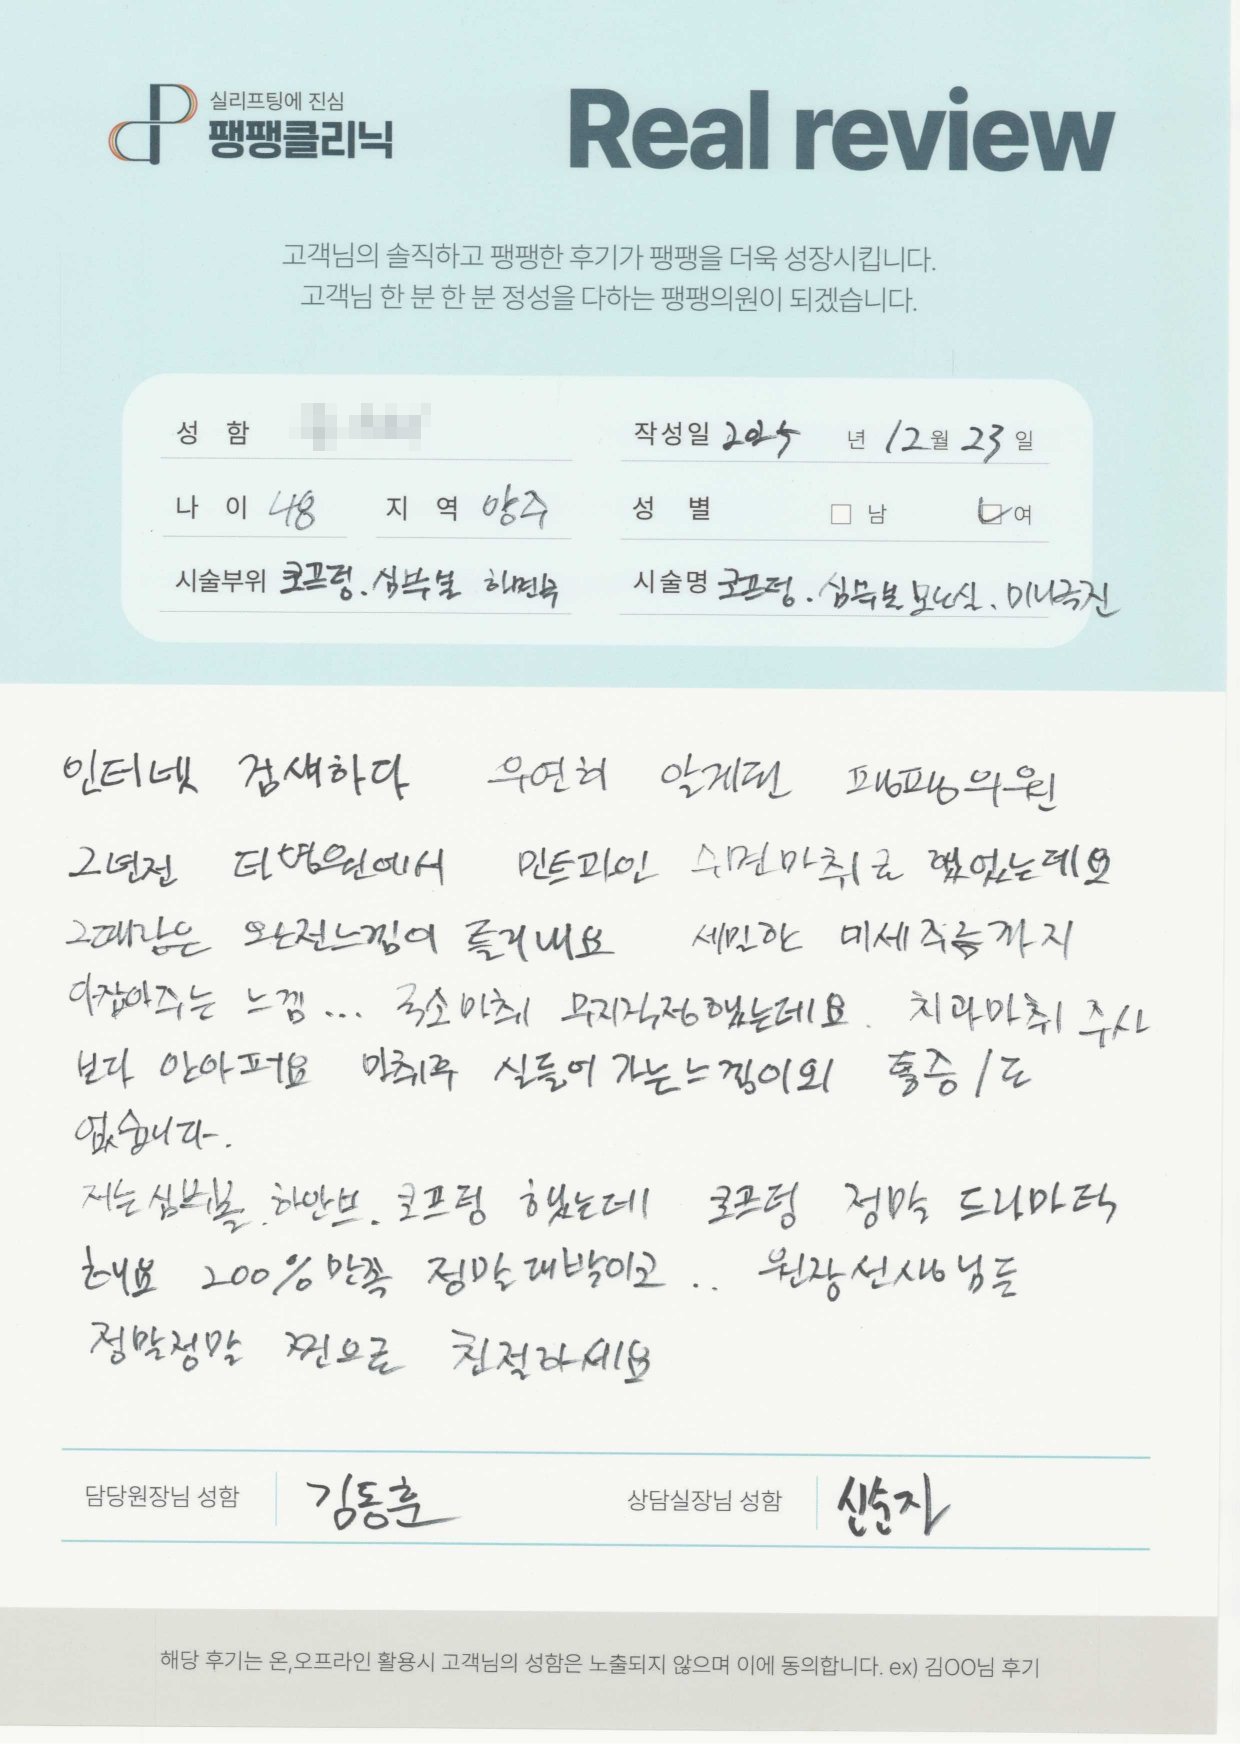 실리프팅에 진심
팽팽클리닉
Real review
고객님의 솔직하고 팽팽한 후기가 팽팽을 더욱 성장시킵니다.
고객님 한 분 한 분 정성을 다하는 팽팽의원이 되겠습니다.
성 함 작성일 2025 년 12 월 23 일
나 이 48 지 역 양주 성 별 남 여
시술부위 코프팅. 심부볼 시술명 코프팅. 심부볼 모노실. 미니쥬진
인터넷 검색하다 우연히 알게된 팽팽의원
2년전 타병원에서 민트파인 수면마취로 했었는데요
그때랑은 완전느낌이 틀리네요 세밀한 미세주름까지
다잡아주는 느낌... 국소마취 무지걱정했는데요. 치과마취 주사
보다 안아퍼요 마취후 실들어가는느낌이외 통증 1도
없습니다.
저는 심부볼. 하안부. 코프팅 했는데 코프팅 정말 드라마틱
해요 200% 만족 정말 대박이고.. 원장선생님도
정말정말 찐으로 친절하세요
담당원장님 성함 김동훈 상담실장님 성함 신순자
해당 후기는 온,오프라인 활용시 고객님의 성함은 노출되지 않으며 이에 동의합니다. ex) 김OO님 후기